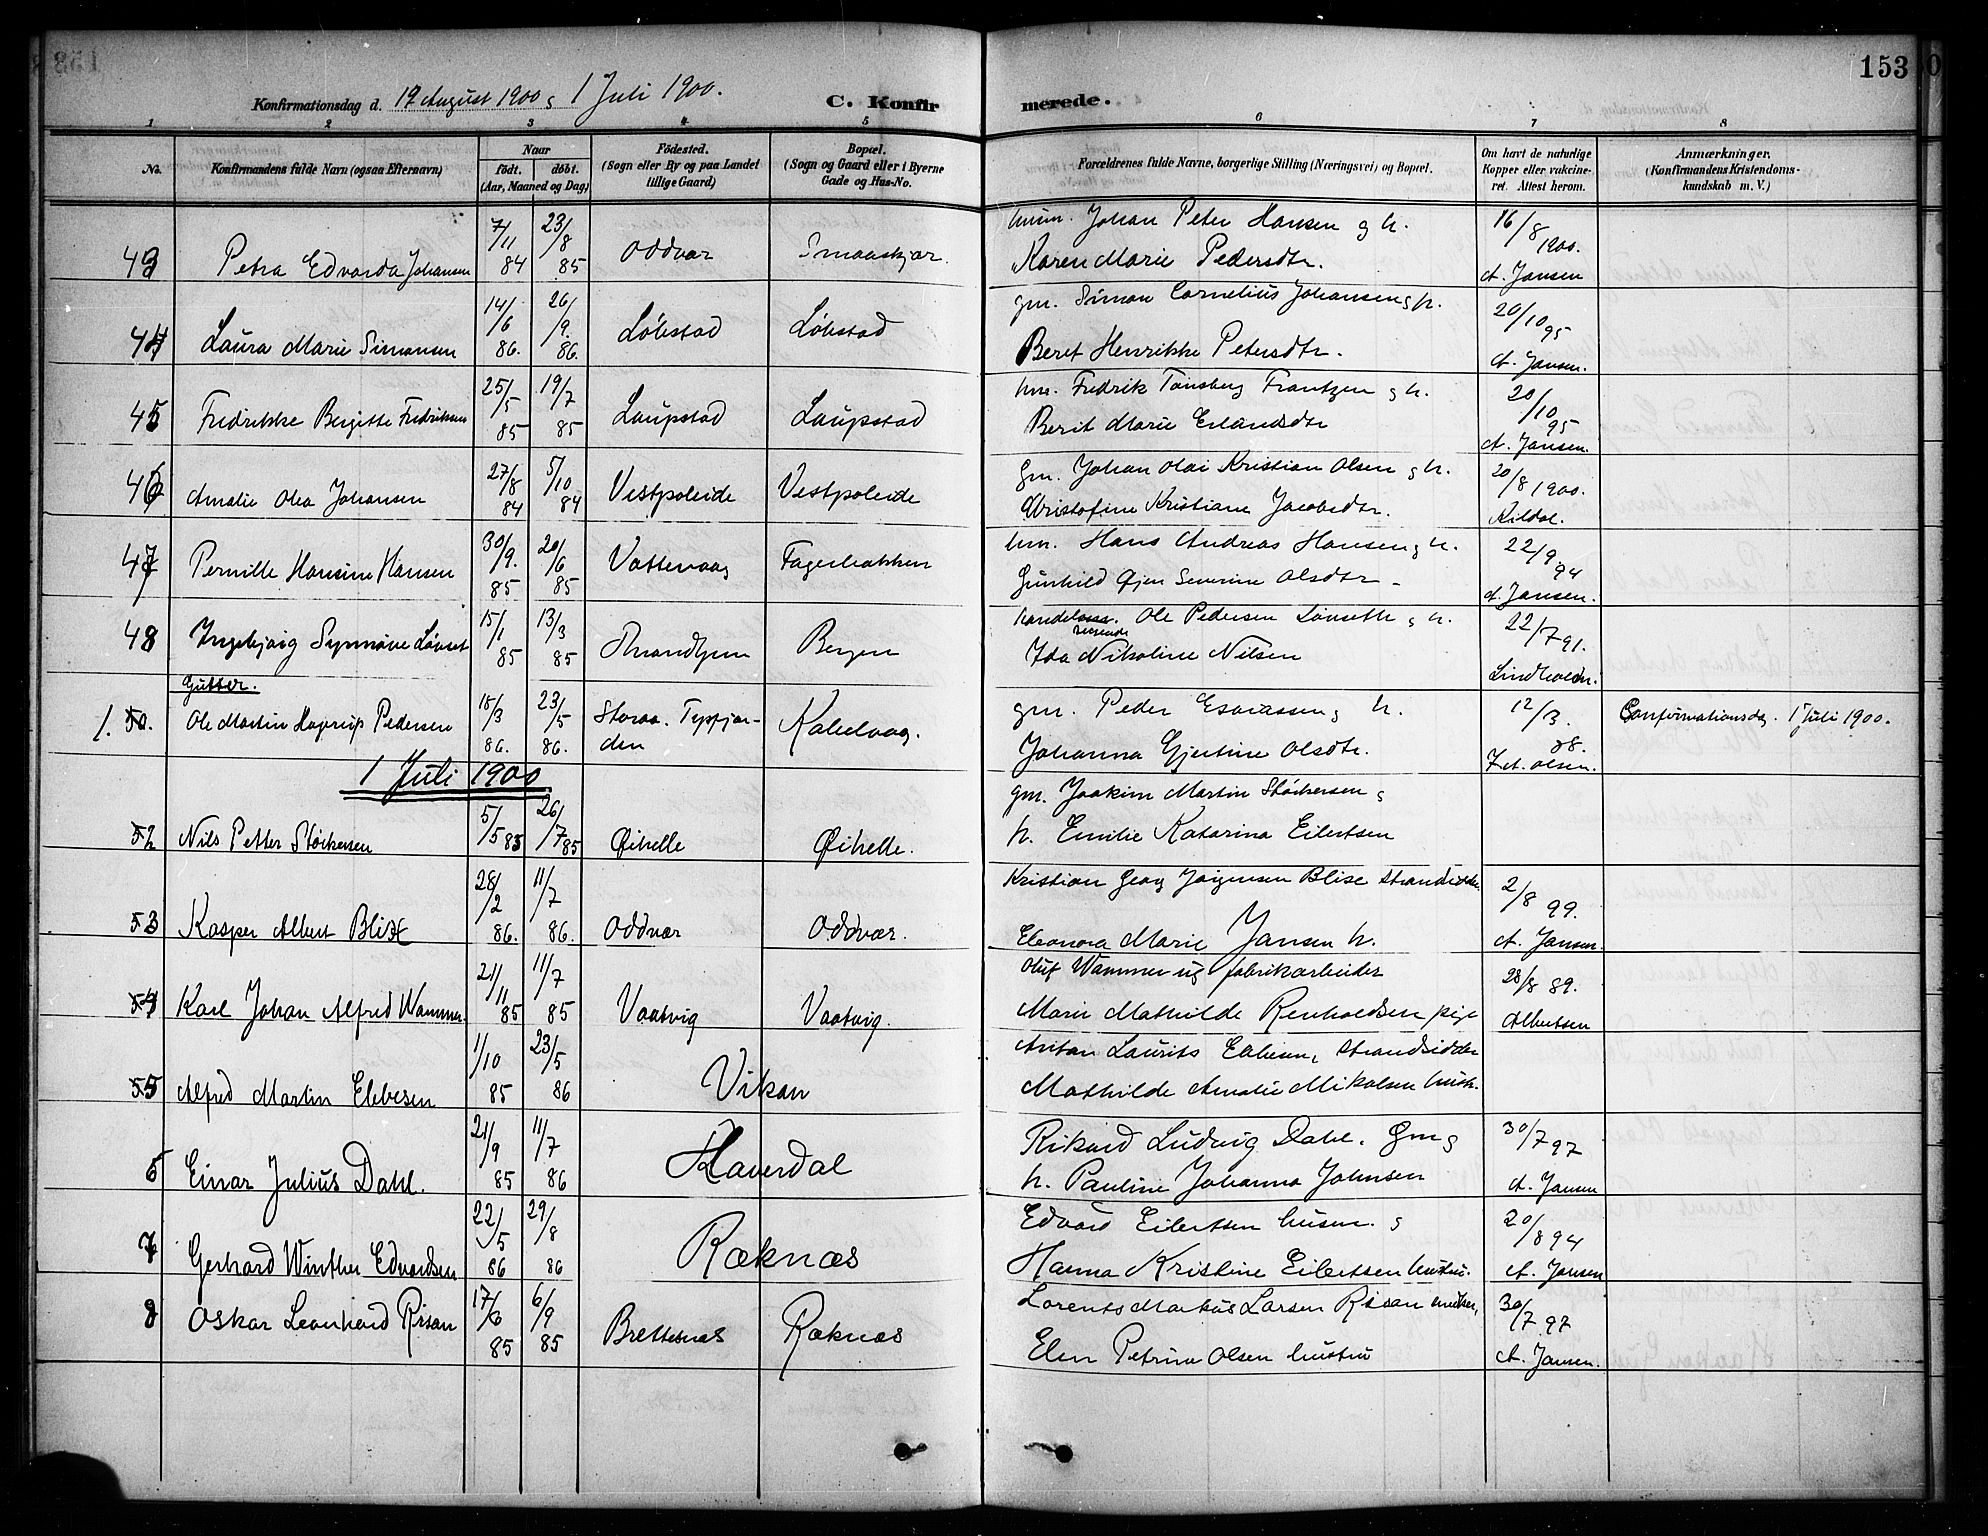 153
Konfirmationsdag d. 19 August 1900 & 1 Juli 1900. C. Konfirmerede.
1 2 3 4 5 6 7 8
No. Konfirmandens fulde Navn (ogsaa Efternavn) Naar født. døbt. (Aar, Maaned og Dag) Fødested. (Sogn eller By og paa Landet tillige Gaard) Bopæl. (Sogn og Gaard eller i Byerne Gade og Hus-No. Forældrenes fulde Navne, borgerlige Stilling (Næringsvei) og Bopæl. Om havt de naturlige Kopper eller vakcineret. Attest herom. Anmærkninger. (Konfirmandens Kristendomskundskab m. V.)
43 Petra Edvarda Johansen 7/11 84 23/8 85 Oddvær Smaaskjær. husm. Johan Peter Hansen & h. 16/8 1900.
Karen Marie Pedersdtr. A. Jansen
44 Laura Marie Simonsen 14/6 86. 26/9. 86. Løbstad Løbstad gm. Simon Cornelius Johansen & h. 20/10 95
Beret Henrikke Petersdtr. A. Jansen.
45 Fredrikke Bergitte Fredriksen 25/5 85 19/7 85 Laupstad Laupstad hm. Fredrik Tønsberg Frantzen & h. 20/10 95
Berit Marie Erlandsdtr A. Jansen.
46 Amalie Olea Johansen 27/8 84 5/10 84 Vestpoleide Vestpoleide Gm. Johan Olai Kristian Olsen & h. 20/8 1900.
Christofine Kristiane Jacobsdtr. Kildal.
47 Pernille Hansine Hansen 30/9. 85 20/6 85 Vattevaag Fagerbakken hm. Hans Andreas Hansen & h. 22/9 94
Gunhild Gjen Severine Olsdtr A. Jansen.
48 Ingebjørg Synnøve Lønset 15/1 85 13/3 85 Throndhjem Bergen handelsreisende Ole Pedersen Lønseth & h. 22/7 91.
Ida Nikoline Nilsen Lindholm.
Gutter.
1. 50. Ole Martin Hagerup Pedersen 18/3 86. 23/5 86. Storaa. Tepfjorden Kabelvaag. gm. Peder Esaiassen & h. 12/3. 88. Confirmationsdg. 1 Juli 1900.
Johanna Gjertine Olsdtr. Z. A. Olsen.
1 Juli 1900
52 Nils Petter Størkersen 5/5 85 26/7 85 Øihelle Øihelle. gm. Joakim Martin Størkersen &
h. Emilie Katarina Eilertsen
53 Kasper Albert Blix 28/2 86. 11/7 86. Oddvær Oddvær. Kristian Georg Jørgensen Blix strandsidder 2/8 99.
Eleonora Marie Jansen h. A. Jansen.
54 Karl Johan Alfred Wammer 21/11 85 11/7 85 Vaatvig Vaatvig. Oluf Wammer ug fabrikarbeider 28/8 89.
Marie Mathilde Renholdsen pige Albertsen
55 Alfred Martin Ebbesen 1/10 85 23/5 86 Vikan Anton Laurits Ebbesen, strandsidder
Mathilde Amalie Mikalsen hustr.
6 Einar Julius Dahl. 21/9 85 11/7 86 Haverdal Rikard Ludvig Dahl. Gm & 30/7 97
h. Pauline Johanna Johnsen A. Jansen
7 Gerhard Winther Edvardsen 22/5 86 29/8 86 Ræknæs Edvard Eilertsen husm. & 20/8 94
Hanna Kristine Eilertsen hustru. A. Jansen
8 Oskar Leonhard Risan 17/6 85 6/9 85 Brettesnæs Ræknæs Lorents Markus Larsen Risan 30/7 97
Elen Petrine Olsen hustru A. Jansen.